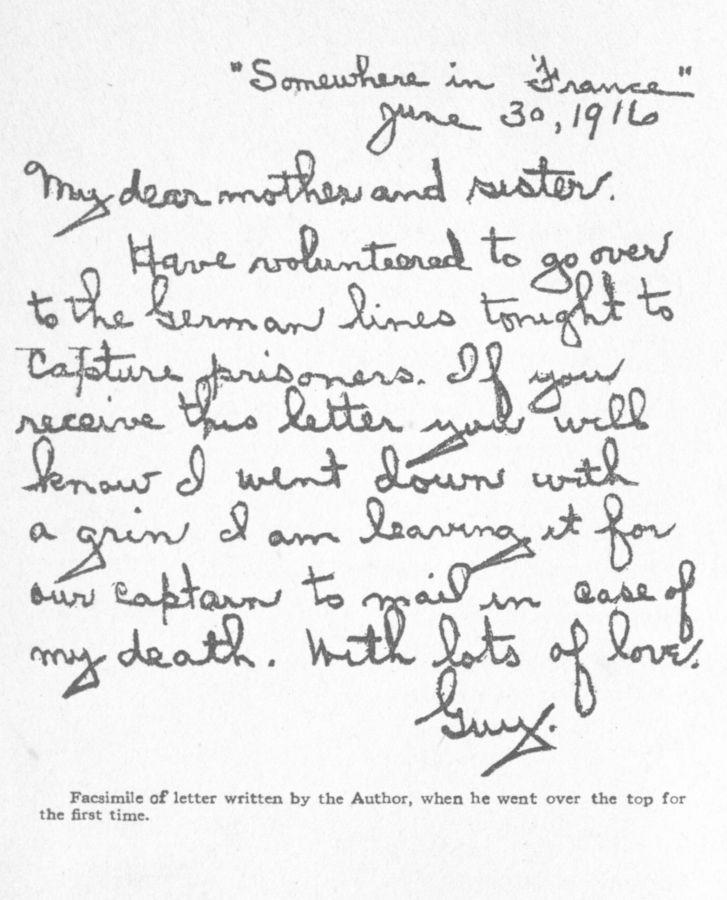 "Somewhere in France"
June 30, 1916
My dear mother and sister.
Have volunteered to go over
to the German lines tonight to
capture prisoners. If you
receive this letter you will
know I went down with
a grin I am leaving it for
our captain to mail in case of
my death. With lots of love.
Guy.
Facsimile of letter written by the Author, when he went over the top for
the first time.